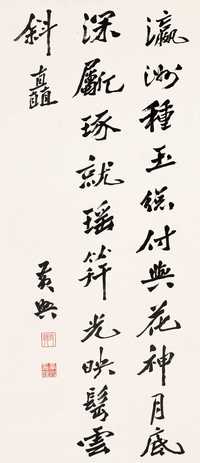 瀛洲種玉總付與花神月底
深斸琢就瑤笄光映鬢雲
斜矗
黃興